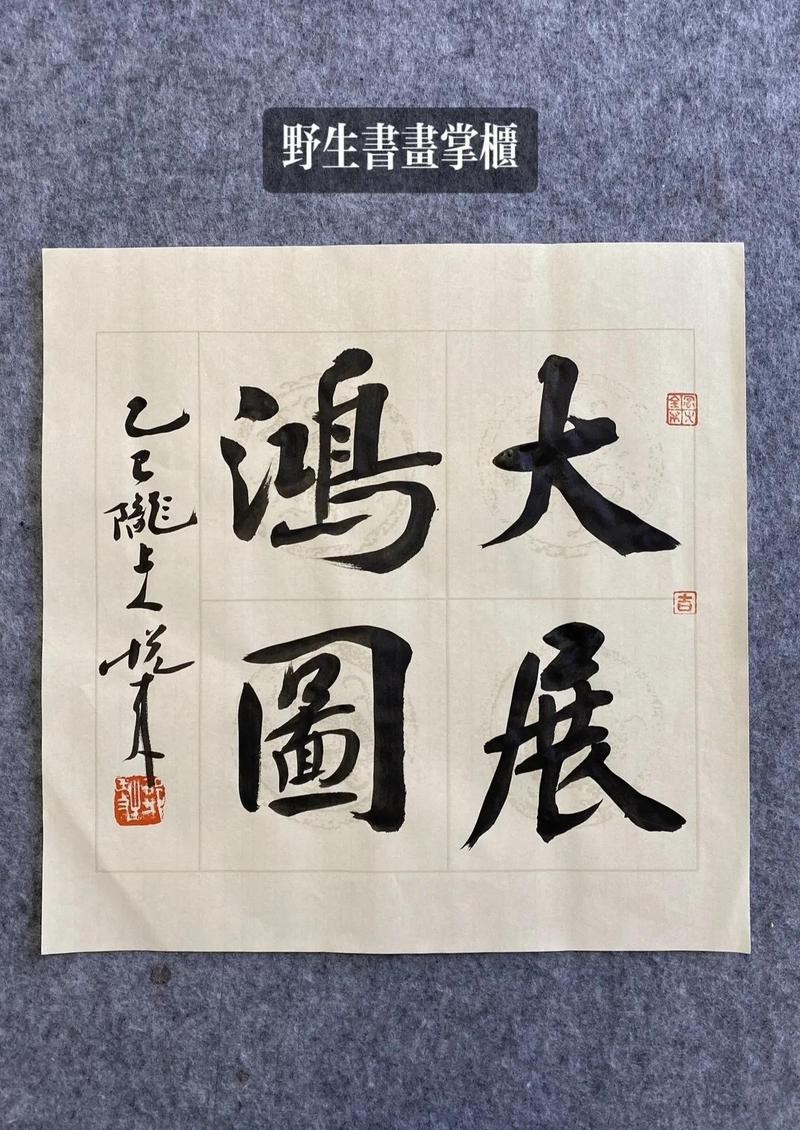 野生書畫掌櫃
大展
鴻圖
乙巳隴上人悦年
吉